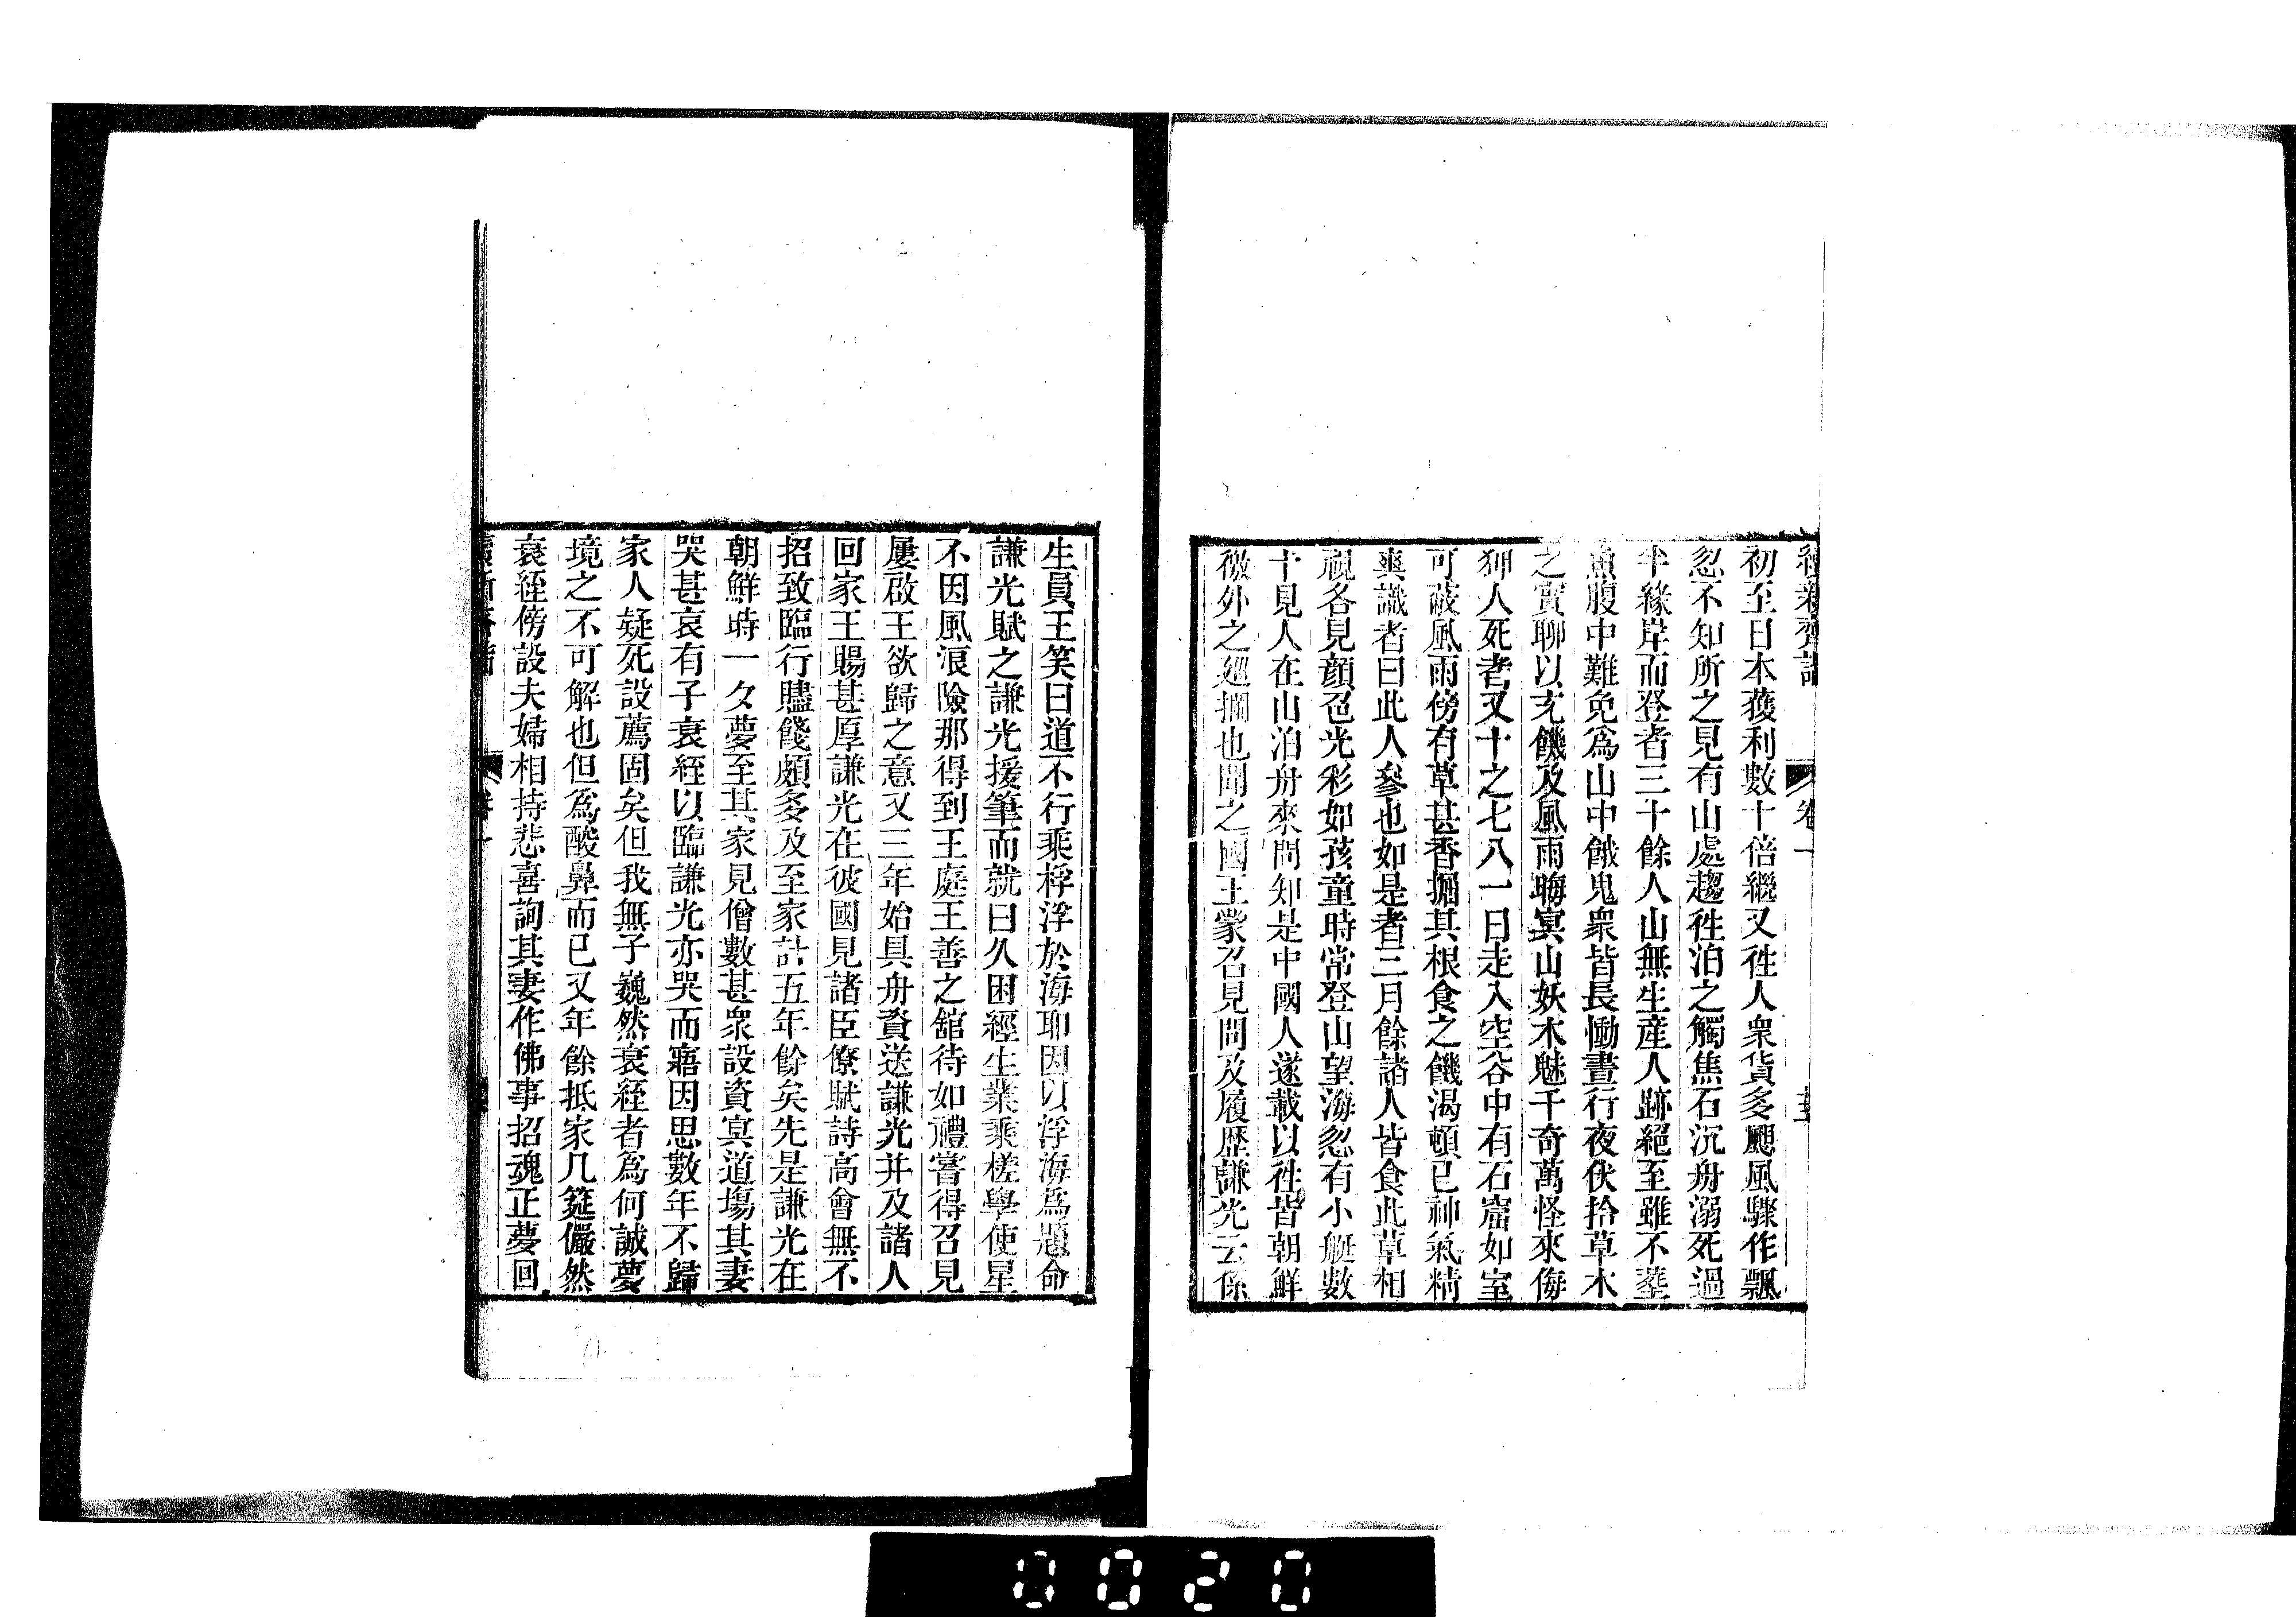 續新齊諧 卷一
初至日本獲利數十倍繼又徃人衆貨多颶風驟作飄
忽不知所之見有山處趨徃泊之觸焦石沉舟溺死過
半緣岸而登者三十餘人山無生產人跡絕至雖不葬
魚腹中難免爲山中餓鬼衆皆長慟晝行夜伏拾草木
之實聊以充饑及風雨晦冥山妖木魅千奇萬怪來侮
狎人死者又十之七八一日走入空谷中有石窟如室
可蔽風雨傍有草甚香掘其根食之饑渴頓已神氣精
爽識者曰此人參也如是者三月餘諸人皆食此草相
視各見顏色光彩如孩童時常登山望海忽有小艇數
十見人在山泊舟來問知是中國人遂載以徃皆朝鮮
徼外之廵攔也聞之國王蒙召見問及履歷謙光云係
生員王笑曰道不行乘桴浮於海耶因以浮海爲題命
謙光賦之謙光援筆而就曰久困經生業乘槎學使星
不因風浪險那得到王庭王善之舘待如禮嘗得召見
屢啟王欲歸之意又三年始具舟資送謙光并及諸人
回家王賜甚厚謙光在彼國見諸臣僚賦詩高會無不
招致臨行贐餞頗多及至家計五年餘矣先是謙光在
朝鮮時一夕夢至其家見僧數甚衆設資冥道場其妻
哭甚哀有子衰絰以臨謙光亦哭而寤因思數年不歸
家人疑死設薦固矣但我無子巍然衰絰者爲何誠夢
境之不可解也但爲酸鼻而已又年餘抵家几筵儼然
衰絰傍設夫婦相持悲喜詢其妻作佛事招魂正夢回
卷一
0020